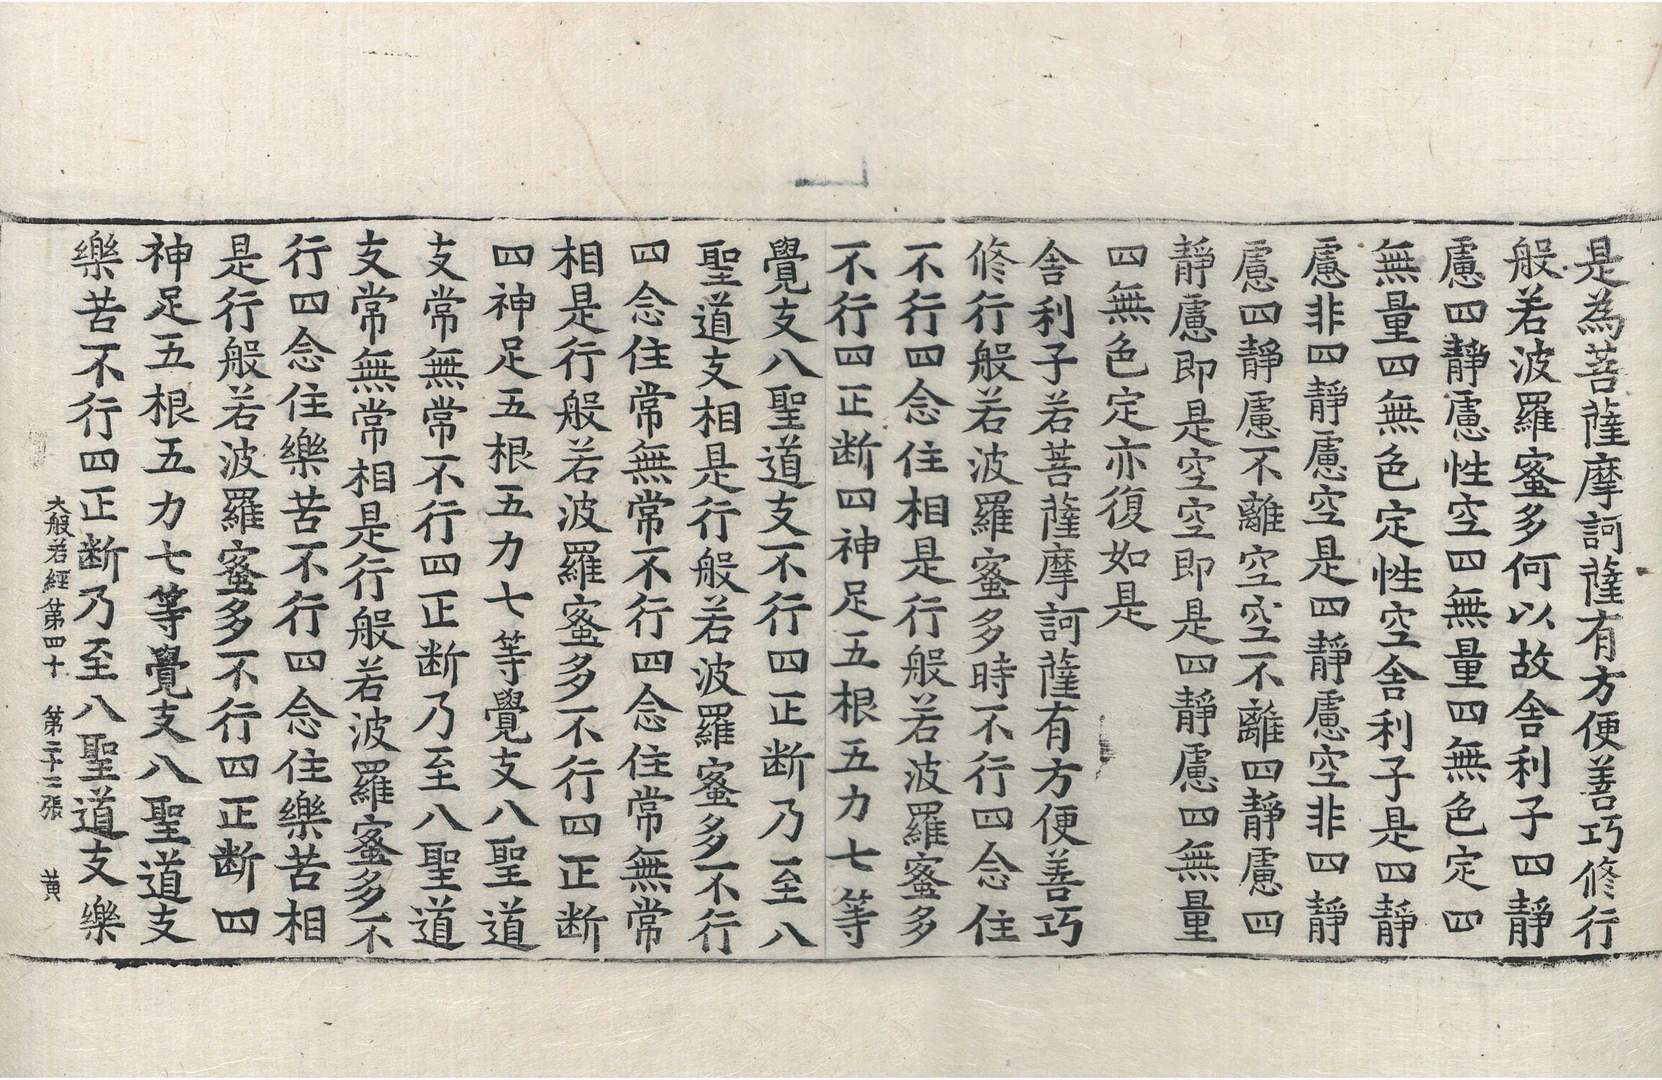 是為菩薩摩訶薩有方便善巧修行
般若波羅蜜多何以故舍利子四靜
慮四靜慮性空四無量四無色定四
無量四無色定性空舍利子是四靜
慮非四靜慮空是四靜慮空非四靜
慮四靜慮不離空空不離四靜慮四
靜慮即是空空即是四靜慮四無量
四無色定亦復如是
舍利子若菩薩摩訶薩有方便善巧
修行般若波羅蜜多時不行四念住
不行四念住相是行般若波羅蜜多
不行四正断四神足五根五力七等
覺支八聖道支不行四正断乃至八
聖道支相是行般若波羅蜜多不行
四念住常無常不行四念住常無常
相是行般若波羅蜜多不行四正断
四神足五根五力七等覺支八聖道
支常無常不行四正断乃至八聖道
支常無常相是行般若波羅蜜多不
行四念住樂苦不行四念住樂苦相
是行般若波羅蜜多不行四正断四
神足五根五力七等覺支八聖道支
樂苦不行四正断乃至八聖道支樂
大般若經第四十 第二十三張 黄